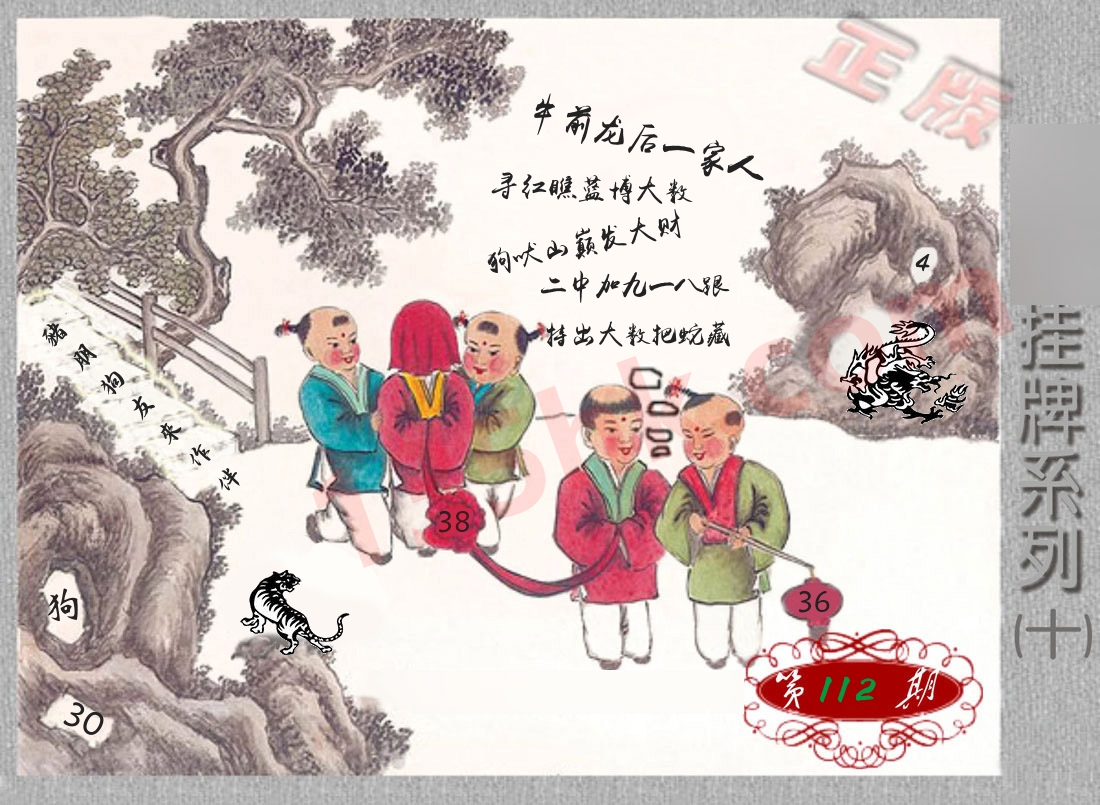 正版
牛前龙后一家人
寻红瞧蓝博大数
狗吠山巅发大财
二中加九一八跟
持出大数把蛇藏
4
挂牌系列(十)
豬朋狗友来作伴
38
36
狗
30
第112期